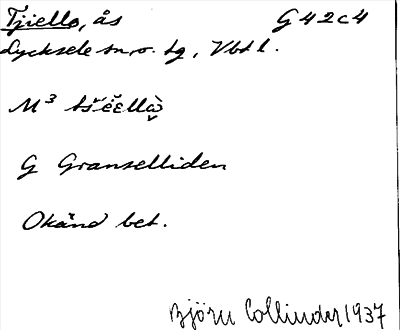 Tjiello, ås G42c4
Lycksele sn, o. tg, Vbtl.
M³ tšĕĕllọ̀
G Granselliden
Okänd bet.
Björn Collinder 1937